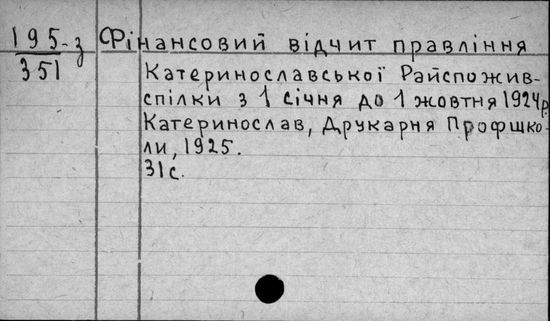 195-з Фінансовий відчит правління
351
Катеринославської Райспожив-
спілки з 1 січня до 1 жовтня 1924р.
Катеринослав, Друкарня Профшко-
ли, 1925.
31с.